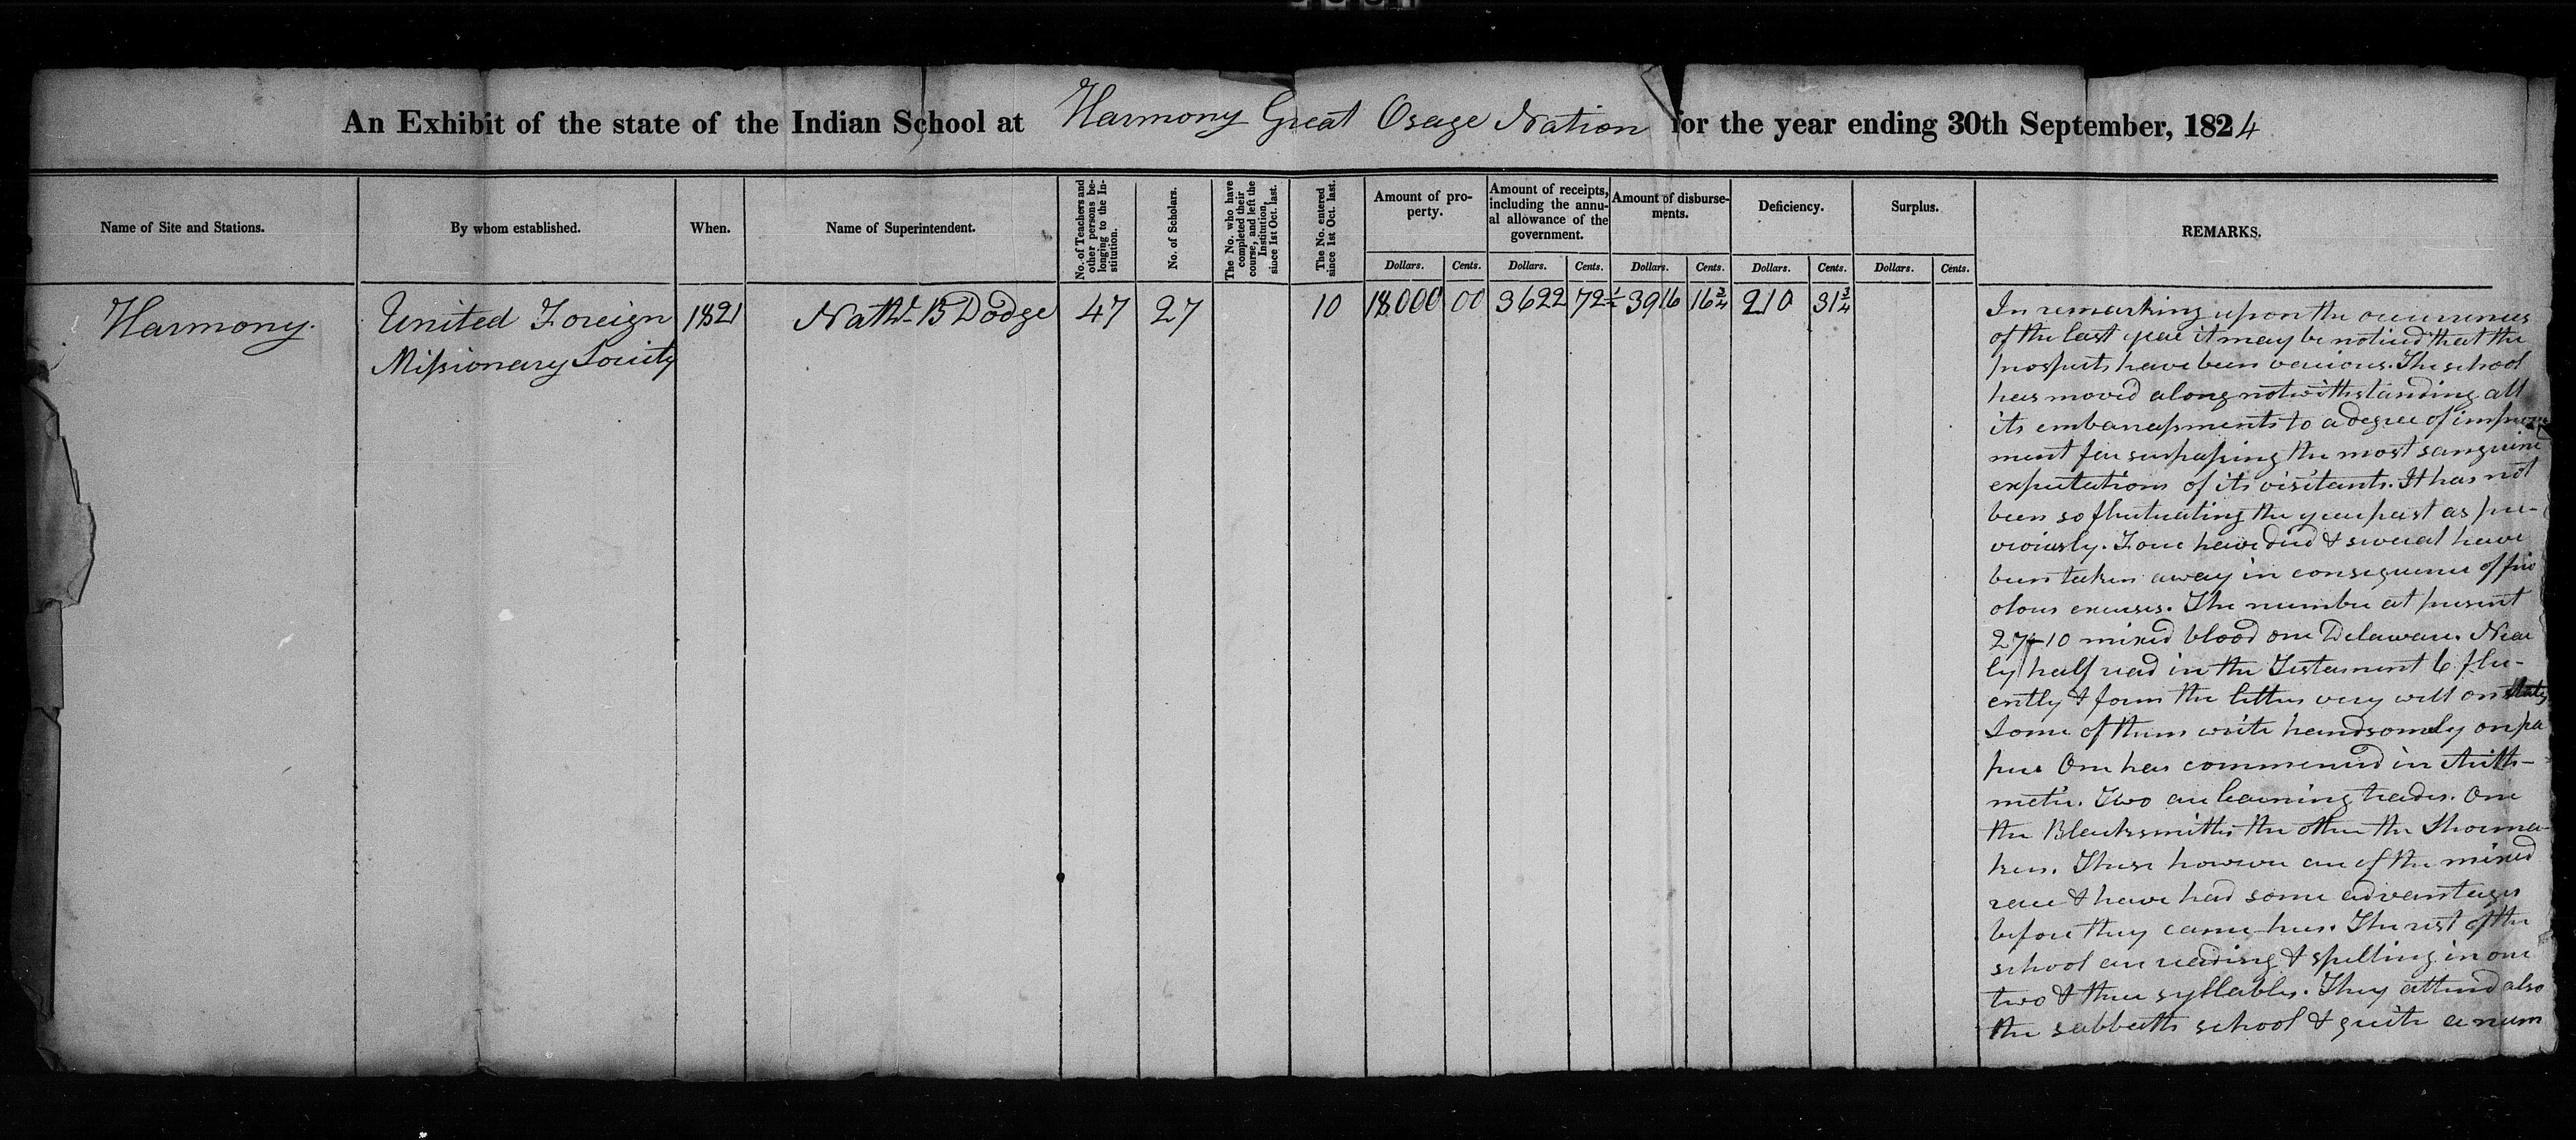 An Exhibit of the state of the Indian School at Harmony Great Osage Nation for the year ending 30th September, 1824
Name of Site and Stations.
By whom established.
When.
Name of Superintendent.
No. of Teachers and other persons be-
longing to the In-
stitution.
No. of Scholars.
The No. who have
completed their
course, and left the
Institution,
since 1st Oct. last.
The No. entered
since 1st Oct. last.
Amount of pro-
perty.
Amount of receipts,
including the annu-
al allowance of the
government.
Amount of disburse-
ments.
Deficiency.
Surplus.
REMARKS.
Dollars. Cents. Dollars. Cents. Dollars. Cents. Dollars. Cents. Dollars. Cents.
Harmony.
United Foreign
Missionary Society
1821
Nathl. B Dodge
47
27
10
18000 00
3622 72½
3916 16¾
210 31¾
In remarking upon the occurrences
of the last year it may be noticed that the
prospects have been various. The school
has moved along notwithstanding all
its embarrassments to a degree of improve
ment far surpassing the most sanguine
expectations of its visitants. It has not
been so fluctuating the year past as pre-
viously. Four have died & several have
been taken away in consequence of friv
olous excuses. The number at present
27 10 mixed blood one Delaware. Near
ly half read in the Testament 6 flu-
ently & form the letters very well on slates
Some of them write handsomely on pa
per One has commenced in Arith-
metic. Two are learning trades. One
the Blacksmiths the other the Shoema-
kers. These however are of the mixed
race & have had some advantages
before they came here. The rest of the
school are reading & spelling in one
two & three syllables. They attend also
the sabbath school & quite a num